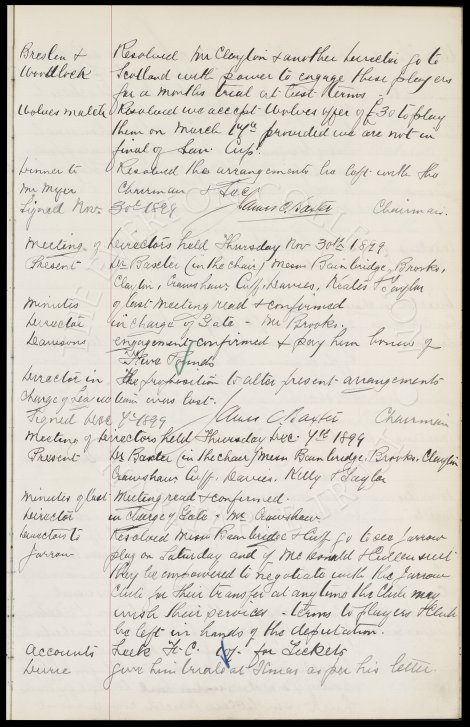 Breslin & Resolved Mr Clayton & another Director go to
Woodlock Scotland with power to engage these players
for a months trial at best terms.
Wolves match Resolved we accept Wolves offer of £30 to play
them on March 14th provided we are not in
final of Lan. Cup.
Dinner to Resolved the arrangements be left with the
Mr Myer Chairman & Secy
Signed Nov 30th 1899 James C Baxter Chairman.
Meeting of Directors held Thursday Nov 30th 1899
Present Dr Baxter (in the chair) Messrs Bainbridge, Brooks,
Clayton, Crawshaw, Cuff, Davies, Keates & Gaylor
Minutes of last Meeting read & confirmed
Director in charge of Gate - Mr Brooks
Dawsons engagement confirmed & pay him bonus of
Five Pounds
Director in the proposition to alter present arrangements
charge of team was lost.
Signed Dec 7th 1899 James C Baxter Chairman
Meeting of Directors held Thursday Dec 7th 1899
Present Dr Baxter (in the chair) Messrs Bainbridge, Brooks, Clayton
Crawshaw Cuff, Davies, Kelly & Gaylor
Minutes of last Meeting read & confirmed.
Director in Charge of Gate - Mr Crawshaw
Directors to Resolved Messrs Bainbridge & Cuff go to see Jarrow
Jarrow play on Saturday and if McDonald & Cullen suit
they be empowered to negotiate with the Jarrow
Club for their transfer at any time the Club may
wish their services - terms to players & Club
be left in hands of the deputation.
Accounts Leek F.C. for Tickets
give him at Xmas as per his letter.